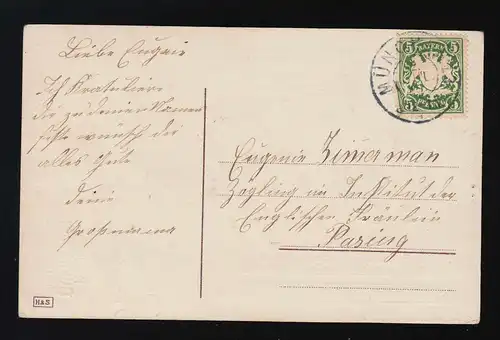 Liebe Eugenie
Ich Kratuliere
die zu deiner Namens
feste wünsch dir
alles Gute
deine
Großmama
H&S
MÜN
5 BAYERN 5
5 PFENNIG 5
Eugenie Zimerman
Zögling im Institut der
Englischen Fräulein
Pasing